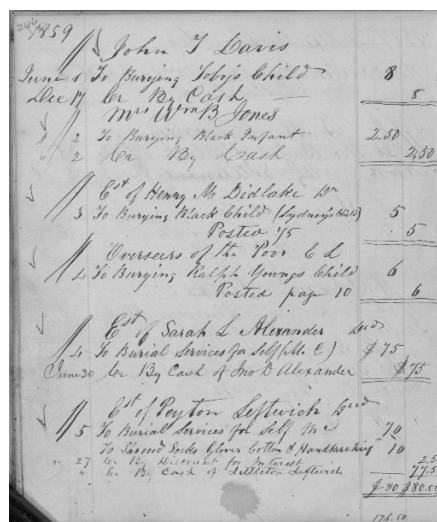 246
1859
John T Davis
June 1 To Burying Toby's Child 8
Dec 17 Cr By Cash 8
Mrs Wm B Jones
" 2 To Burying Black Infant 2.50
" 2 Cr By Cash 2,50
Est of Henry M Didlake
3 To Burying Black Child (Sydney's Child) 5
Posted 75 5
Overseers of the Poor C L
4 To Burying Ralph Youngs Child 6
Posted page 10 6
Est of Sarah L Alexander Decd
4 To Burial Services for Self (M C) $75
June 30 Cr By Cash of Jno D Alexander $75
Est of Peyton Leftwich Decd
5 To Burial Services for Self M C 70
To Shroud Socks Gloves Cotton & Handkerchief 10
" 27 Cr By Discount for Interest 2.5
" Cr By Cash of Littleton Leftwich 77.5
$80 $80.00
176.50